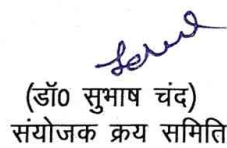 (डॉ0 सुभाष चंद)
संयोजक क्रय समिति